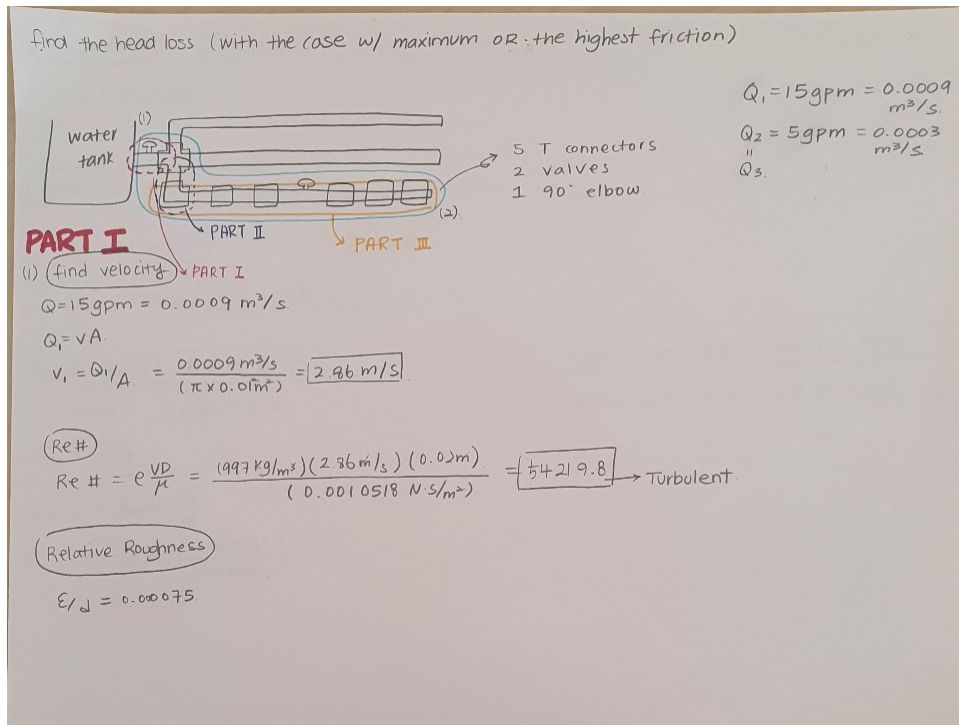 find the head loss (with the case w/ maximum OR: the highest friction)
Q₁ = 15gpm = 0.0009 m³/s.
Q₂ = 5gpm = 0.0003 m³/s
"
Q₃.
(1)
water
tank
5 T connectors
2 valves
1 90° elbow
(2).
PART II
PART III
PART I
PART I
(1) find velocity
Q=15gpm = 0.0009 m³/s.
Q₁ = VA.
V₁ = Q₁/A = 0.0009 m³/s / (π x 0.01² m²) = 2.86 m/s
Re #
Re # = ρ VD/μ = (997 kg/m³)(2.86 m/s)(0.02m) / (0.0010518 N·S/m²) = 54219.8 → Turbulent.
Relative Roughness
ε/d = 0.000075.